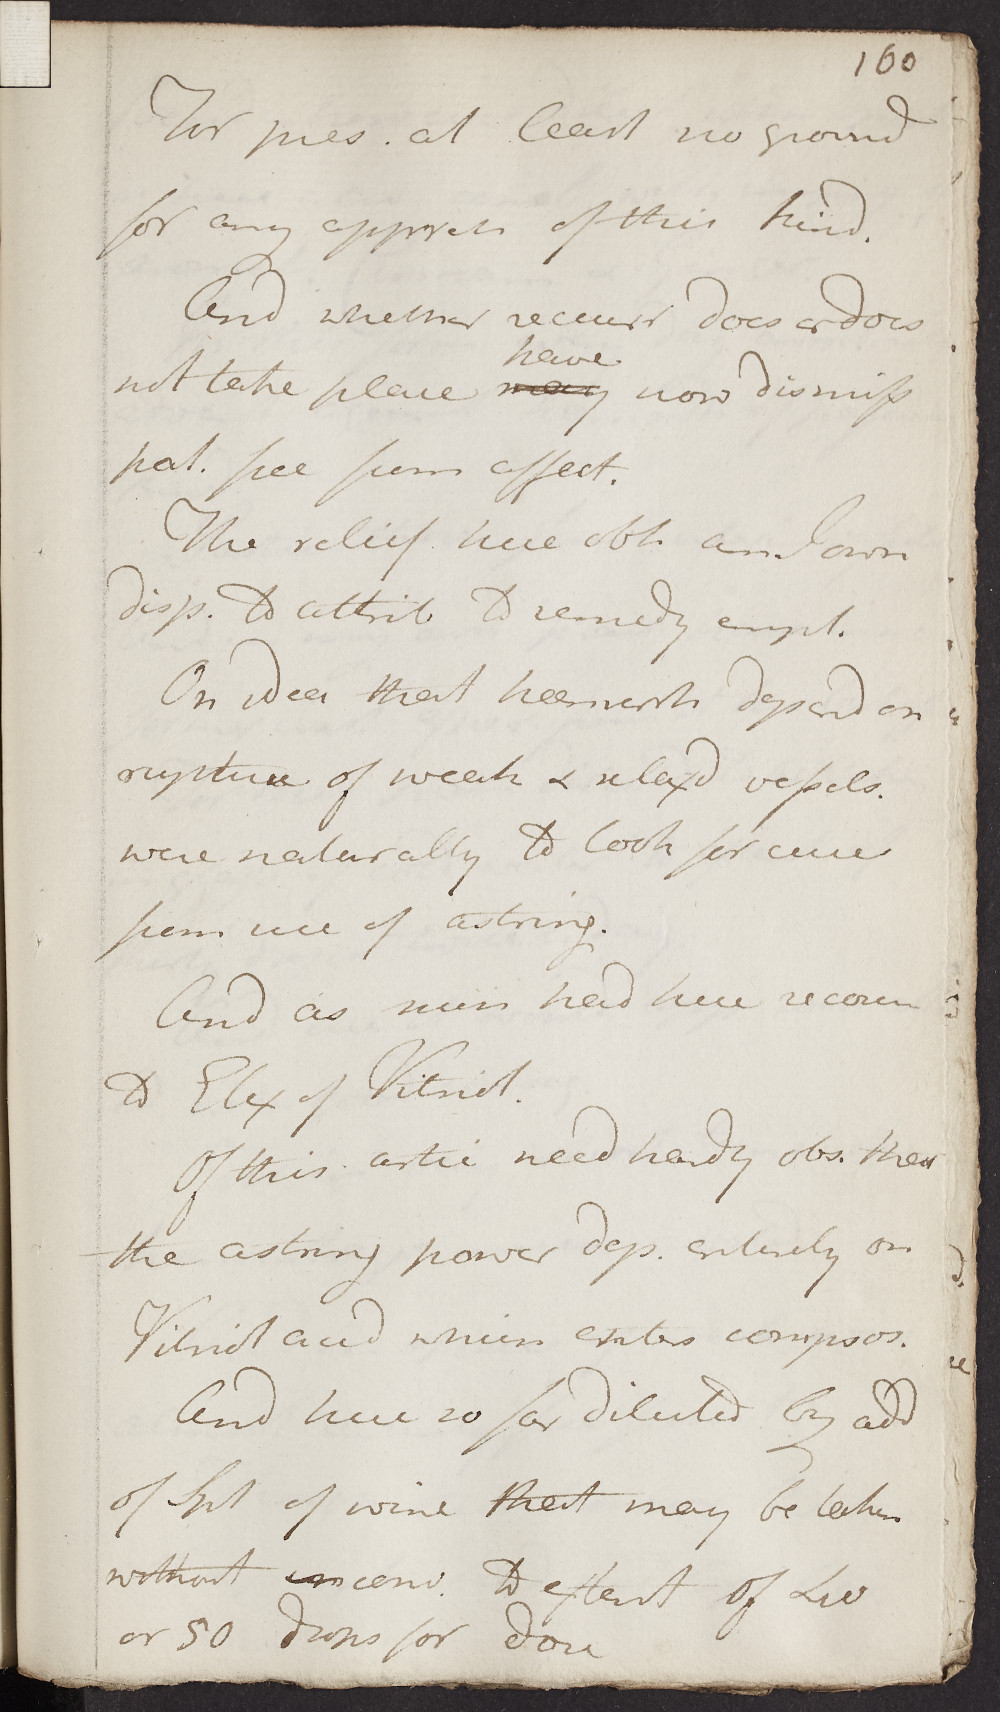 160
For pres. at least no ground
for any appreh of this kind.
And whether recurr does or does
have
not take place may now dismiss
pat. free from affect.
The relief here obt am I own
disp. to attrib to remedy empl.
On idea that haemorrh depend on
rupture of weak & relaxd vessels.
were naturally to look for cure
from use of astring.
And as such had here recour
to Elix of Vitriol.
Of this artic need hardly obs. that
the astring power dep. entirely on
Vitriol acid which enters compos.
And here so far diluted by add
of Spt of wine that may be taken
without inconv. to extent of 40
or 50 drops for dose